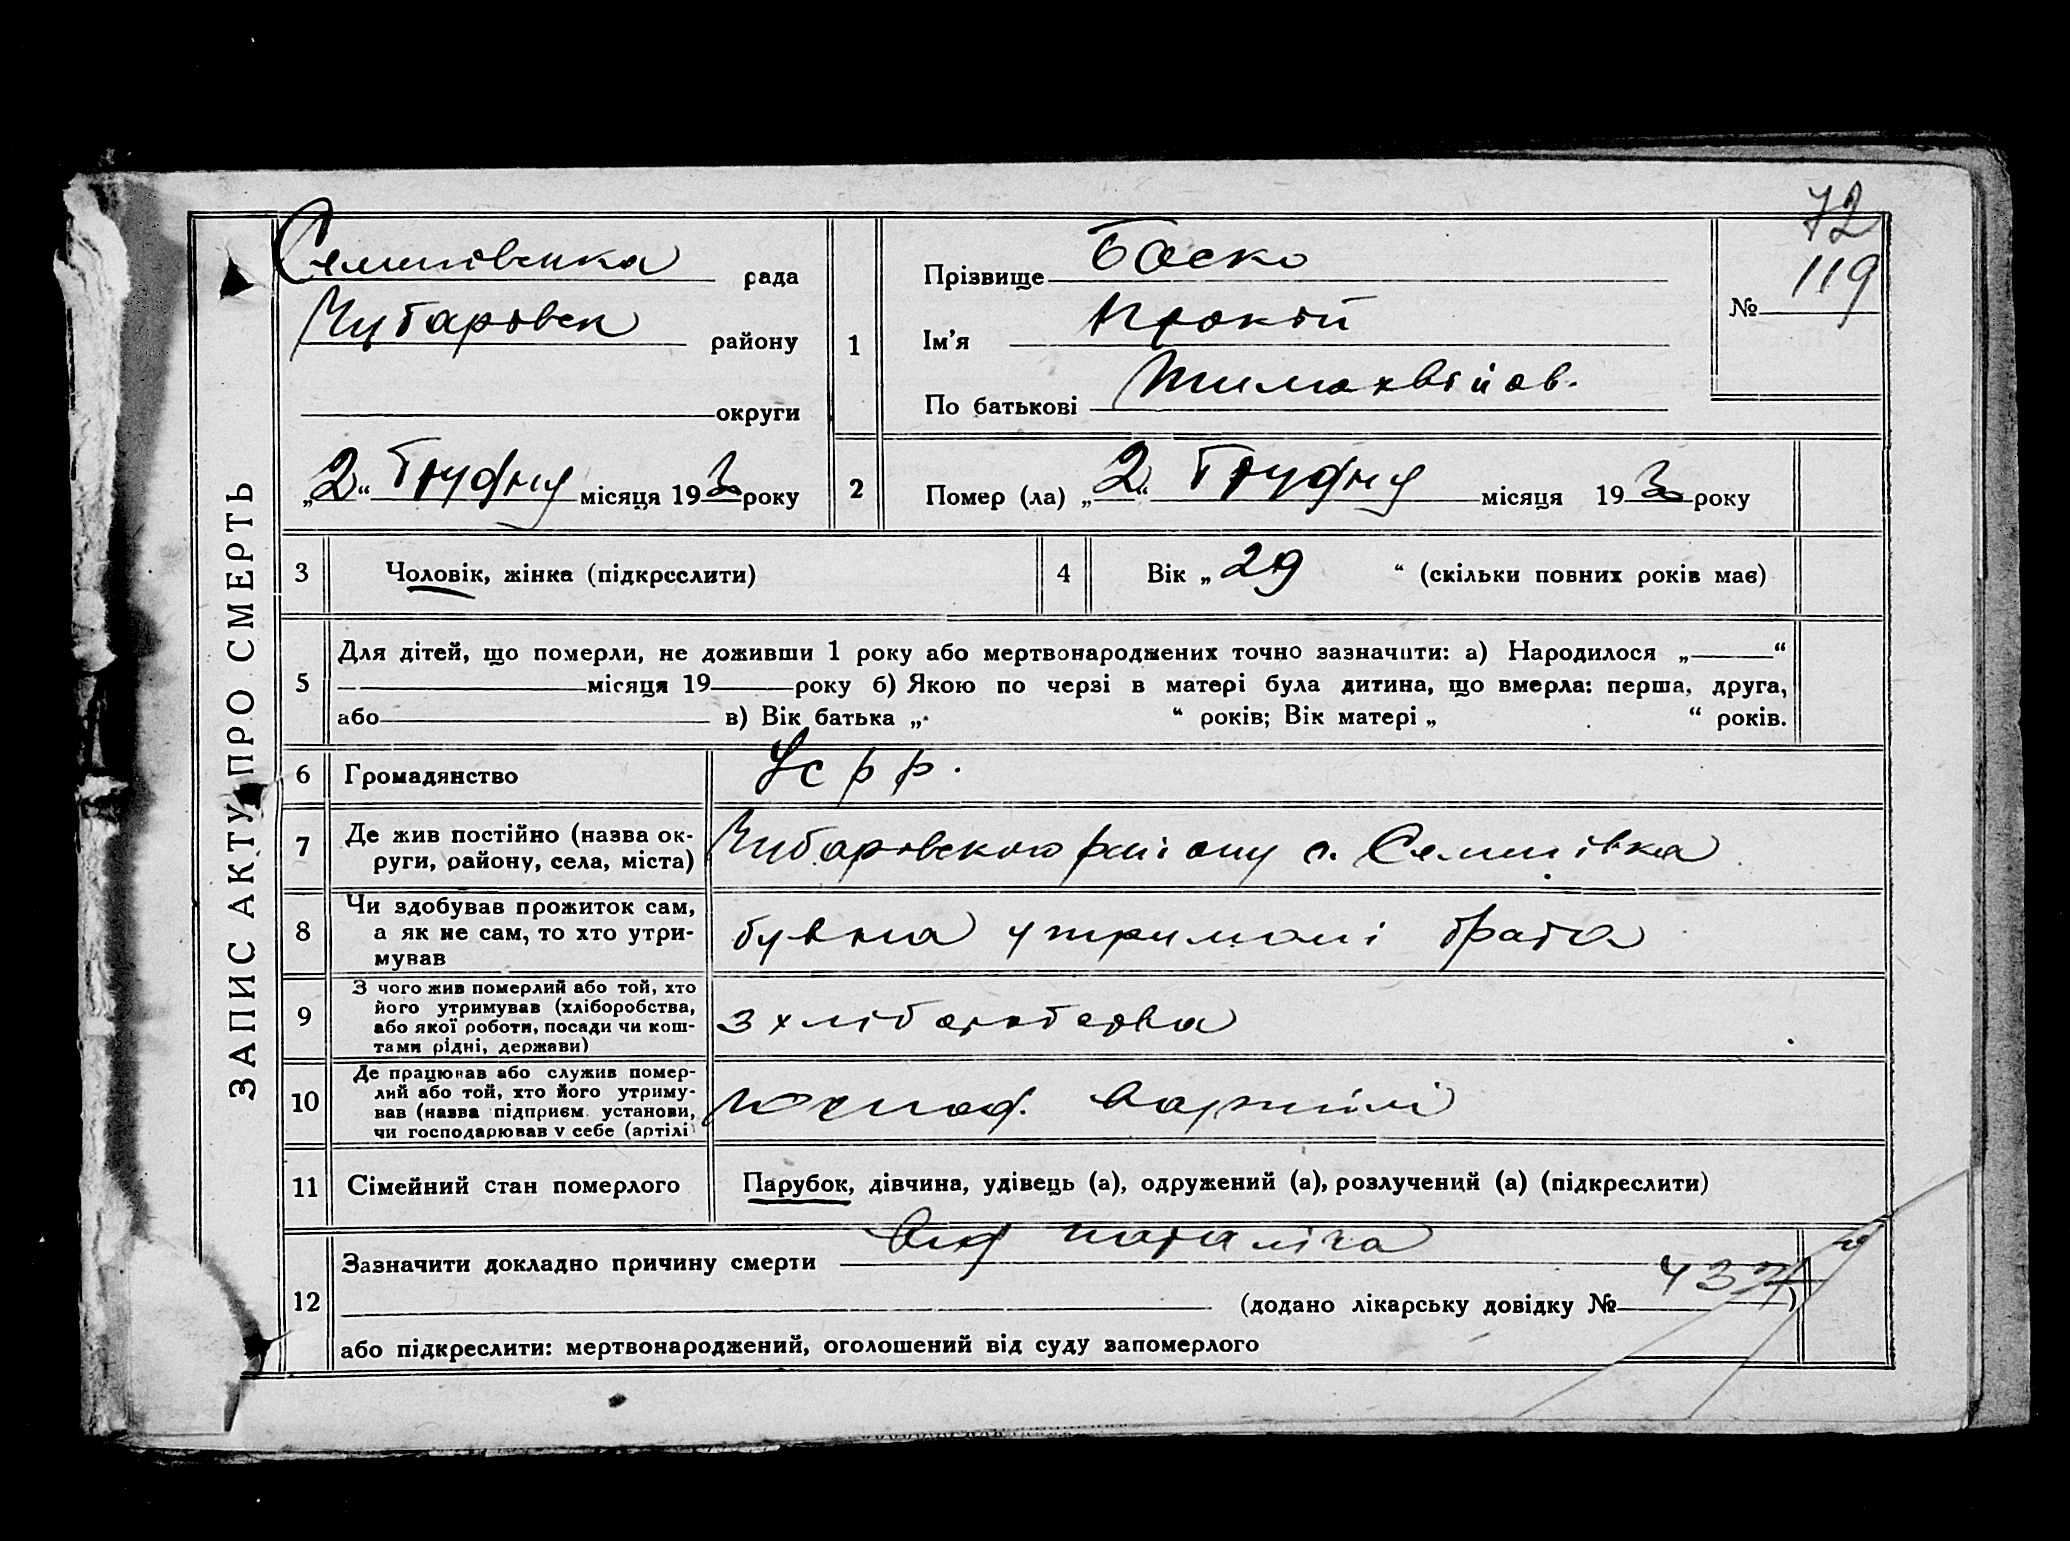 72
ЗАПИС АКТУ ПРО СМЕРТЬ
Семенівська рада
Чубарівськ району
округи
„2“ Грудня місяця 1930 року
1
Прізвище Баско
Ім’я Прокіп
По батькові Тимохвійов.
№ 119
2
Помер (ла) „2“ Грудня місяця 1930 року
3 Чоловік, жінка (підкреслити)
4 Вік „29“ (скільки повних років має)
5 Для дітей, що померли, не доживши 1 року або мертвонароджених точно зазначити: а) Народилося „ “
місяця 19 року б) Якою по черзі в матері була дитина, що вмерла: перша, друга,
або в) Вік батька „ “ років; Вік матері „ “ років.
6 Громадянство Усрр.
7 Де жив постійно (назва ок-
руги, району, села, міста) Чубаровского району с. Семенівка
8 Чи здобував прожиток сам,
а як не сам, то хто утри-
мував
був на утримані брата
9 З чого жив померлий або той, хто
його утримував (хліборобства,
або якої роботи, посади чи кош-
тами рідні, держави)
з хліборобства
10 Де працював або служив помер-
лий або той, хто його утриму-
вав (назва підприєм. установи,
чи господарював у себе (артілі)
господ. в артілі
11 Сімейний стан померлого Парубок, дівчина, удівець (а), одружений (а), розлучений (а) (підкреслити)
12 Зазначити докладно причину смерти Від
(додано лікарську довідку № 437)
або підкреслити: мертвонароджений, оголошений від суду запомерлого